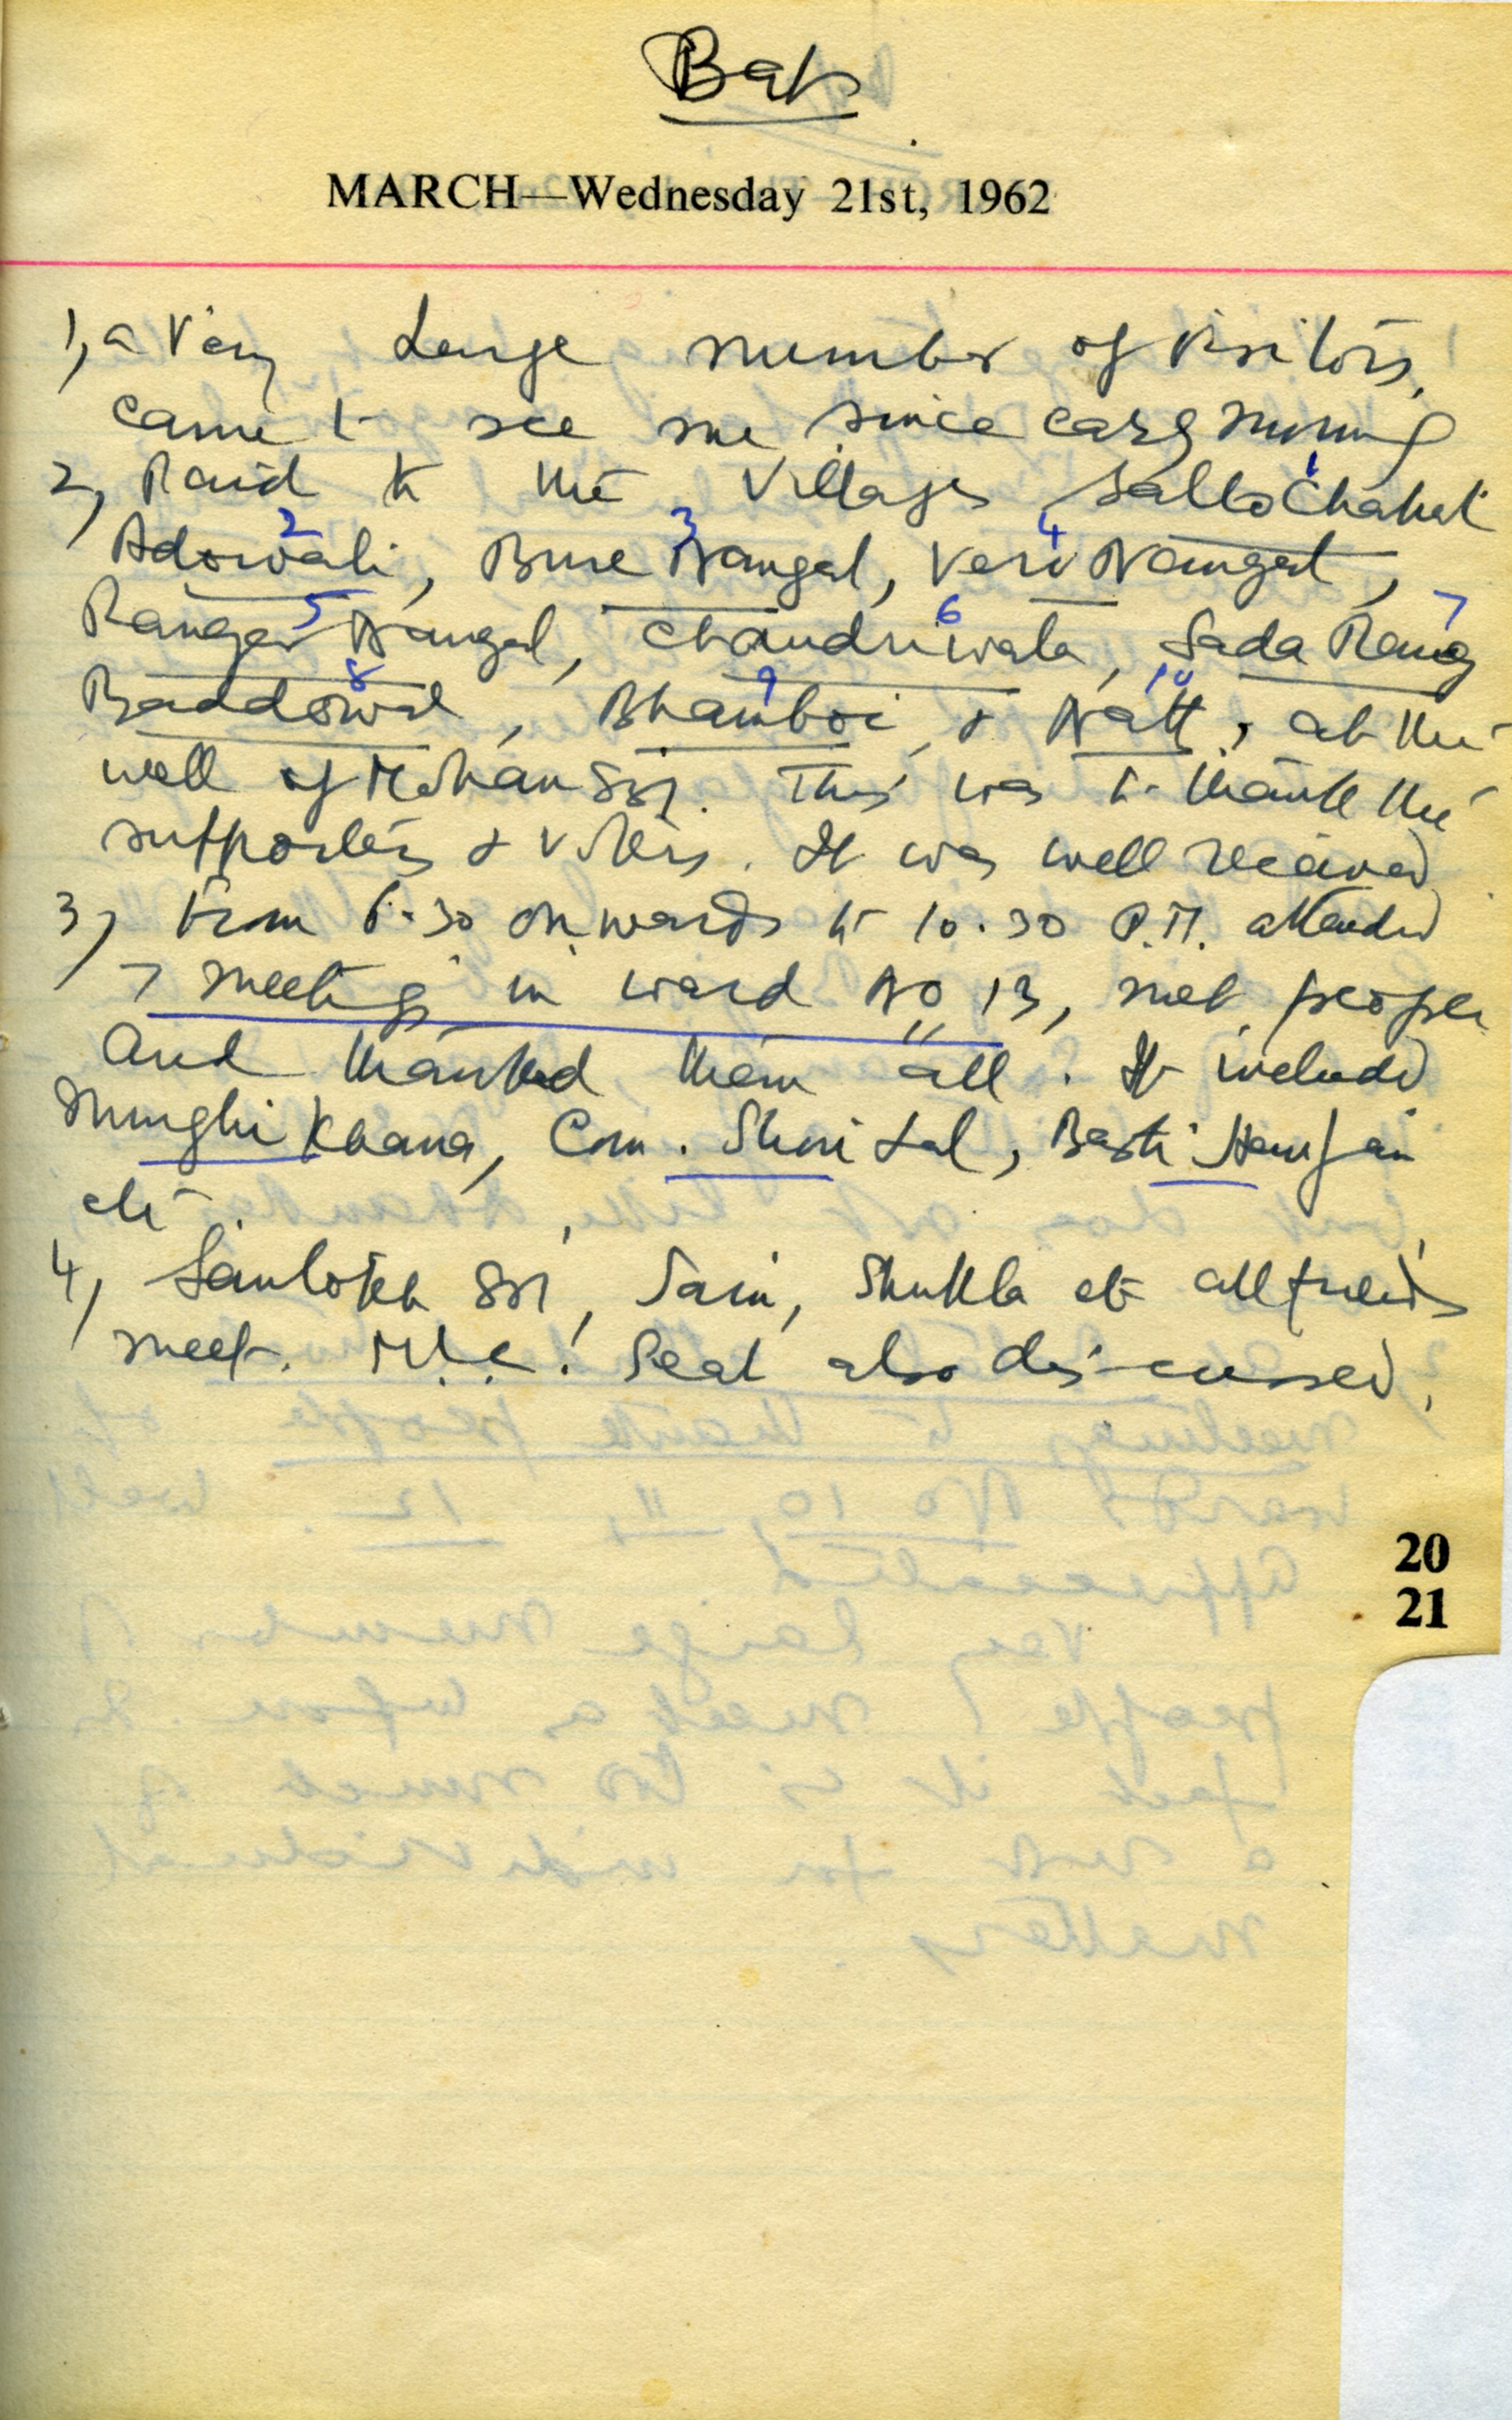 MARCH—Wednesday 21st, 1962
1, a Very Large number of Visitors
came to see me since early morning
2, Paid to the Villages Sallo Chahal
1
Adowali, Bure Nangal, Veri Nangal,
2 3 4
Ranger Nangal, Chandriwala, Sada Rang
5 6 7
Baddowal, Bhamboi, & Natt, at the
8 9 10
well of Mohan Sgh. This was to thank the
supporters & voters. It was well received
3, From 6.30 onwards to 10.30 P.M. attended
7 meetings in ward No 13, met people
and thanked them all. It included
Khana, Com. Shori Lal, Basti
etc.
4, Santokh Sgh, Saini, Shukla etc all friends
meet. M.L.C. Seat also discussed.
20
21